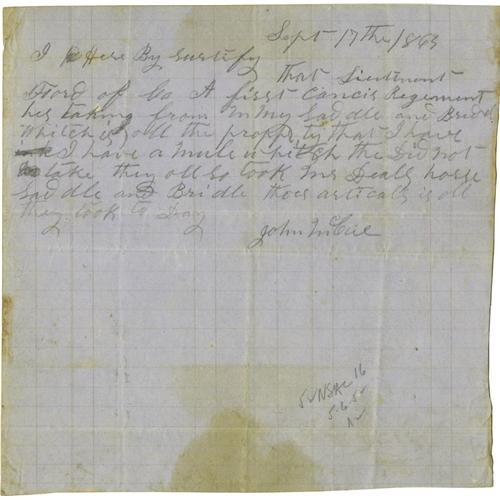 Sept 17the /1863
I Here By Surtify
that Lieutnont
Ford of Co A first Cancis Regement
hes taking from My Saddle and Bridle
Whitch is all the property that I have
I have a Mule whitch the Did not
take they all So took Deals horse
Saddle and Bridle thees articals is all
they took to Day
John
16
5.6.5